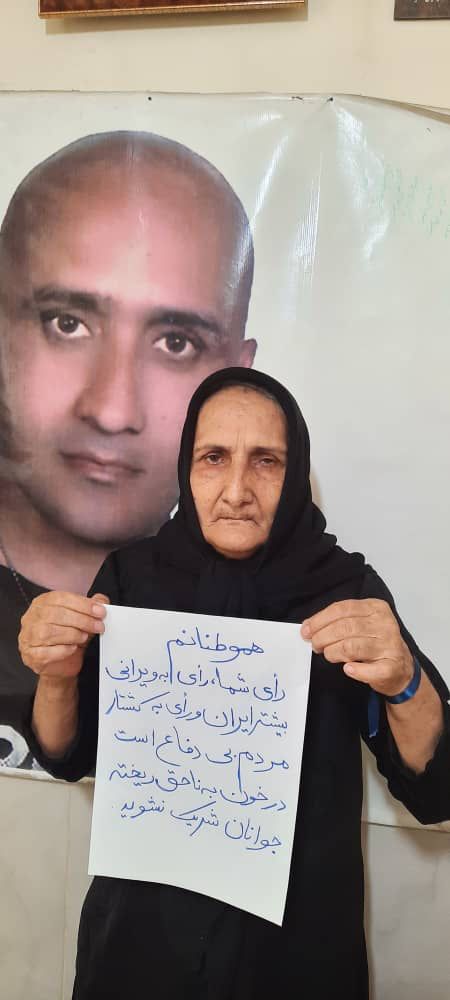 هموطنانم
رأی شما، رأی به ویرانی
بیشتر ایران و رأی به کشتار
مردم بی دفاع است
در خون به ناحق ریخته
جوانان شریک نشوید.